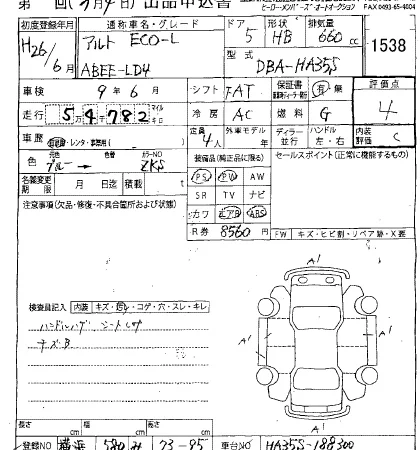 第 回(3月4日) 出品申込書
ヒーローメンバーズ・オートオークション FAX 0493-65-4004
初度登録年月 通称車名・グレード ドア 形状 排気量
H26/6月 アルト ECO-L 5 HB 660cc 1538
ABEE-LD4 型式 DBA-HA35S
車検 9年6月 シフト FAT 保証書 有 無 評価点
走行 54782 マイル キロ 冷房 AC 燃料 G 4
車歴 自家用・レンタ・事務用( ) 定員 4人 外車モデル 年 ディーラー 並行 ハンドル 左・右 内装評価 C
色 元色 ブルー→ 色替 カラーNO ZKS 装備品(純正品に限る) セールスポイント(正常に機能するもの)
名義変更期限 月 日迄 積載 t PS PW AW
注意事項(欠品・修復・不具合箇所および状態) SR TV ナビ
カワ エアB ABS
R券 8560円 FW キズ・ヒビ割・リペア跡・X要
検査員記入 内装 キズ・汚レ・コゲ・穴・スレ・キレ
A1 A1
ハンドルハゲ シート
キズB
A1 A1
A1
長さ cm 幅 cm 高さ cm
登録NO 横浜 580 み 73-95 車台NO HA35S-188300